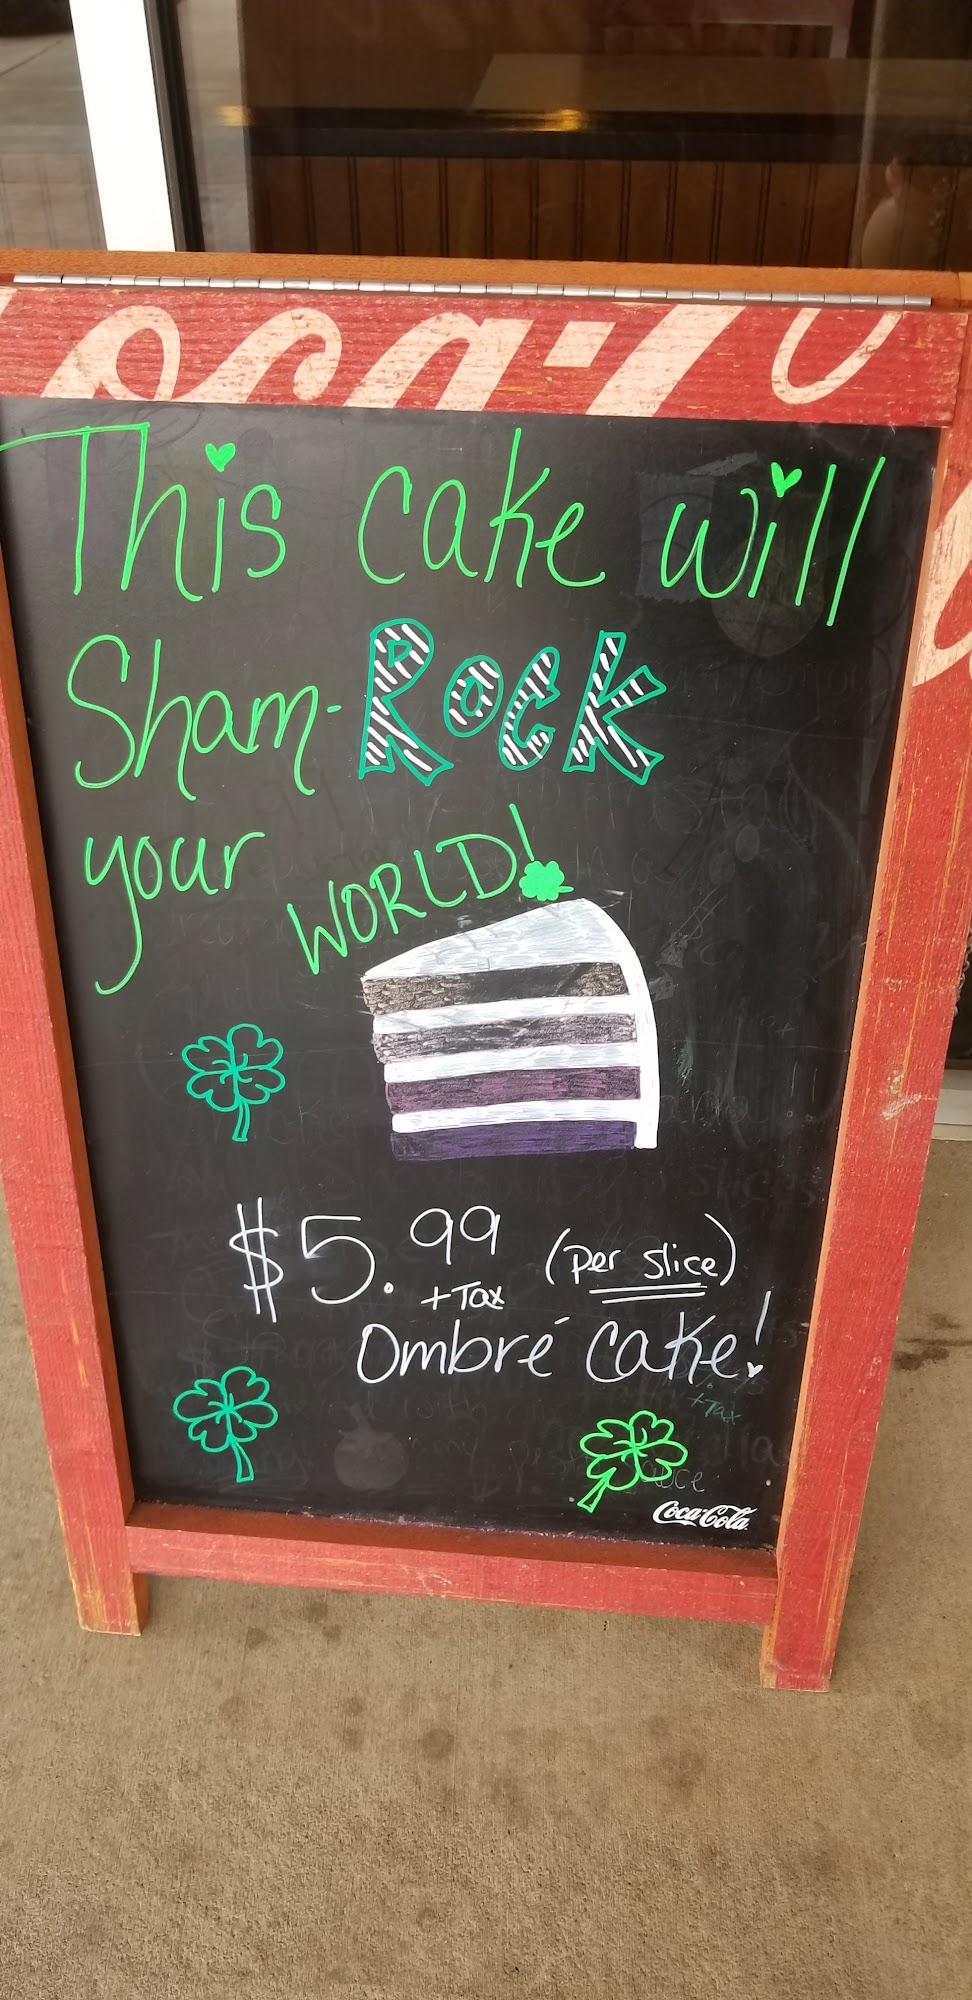 Coca-Co
This cake will
Sham-Rock
your
WORLD!
$5.99 (per slice)
+Tax
Ombré cake!
+Tax
Coca-Cola